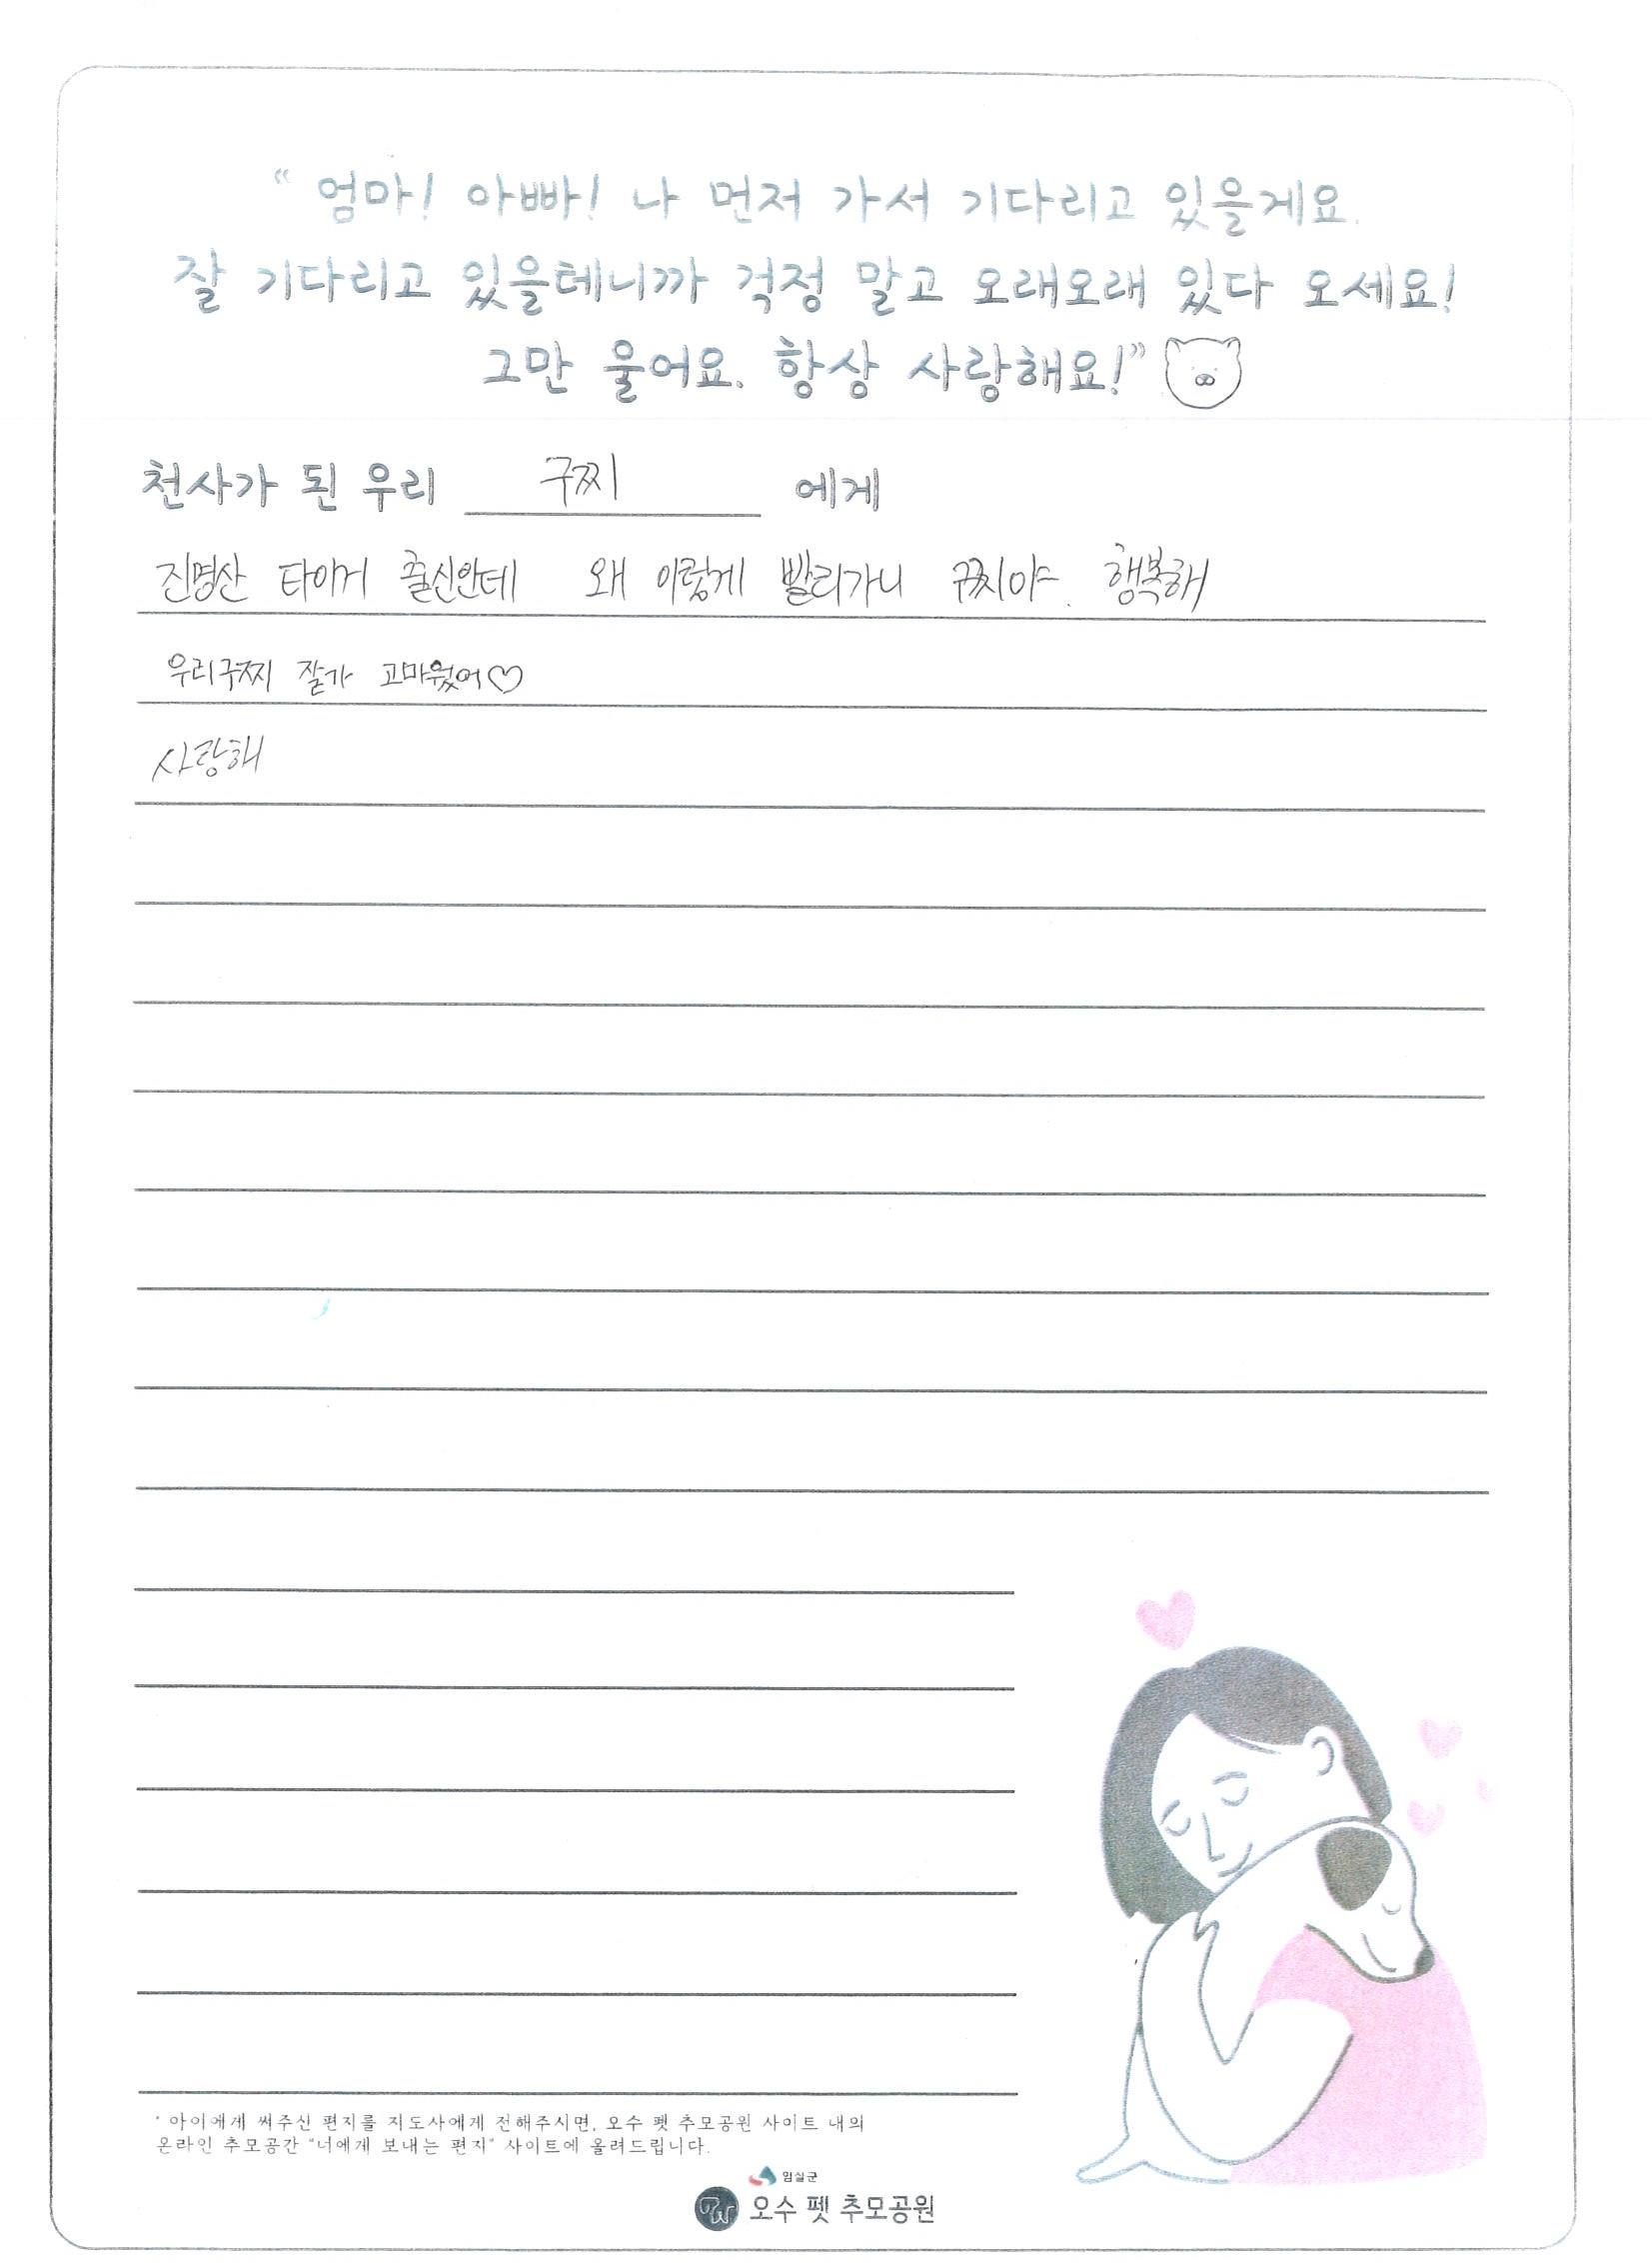 “ 엄마! 아빠! 나 먼저 가서 기다리고 있을게요.
잘 기다리고 있을테니까 걱정 말고 오래오래 있다 오세요!
그만 울어요. 항상 사랑해요!”
천사가 된 우리 구찌 에게
진명산 타이거 출신안데 왜 이렇게 빨리가니 구찌야. 행복해
우리구찌 잘가 고마웠어♡
사랑해
* 아이에게 써주신 편지를 지도사에게 전해주시면, 오수 펫 추모공원 사이트 내의
온라인 추모공간 “너에게 보내는 편지” 사이트에 올려드립니다.
임실군
오수 펫 추모공원